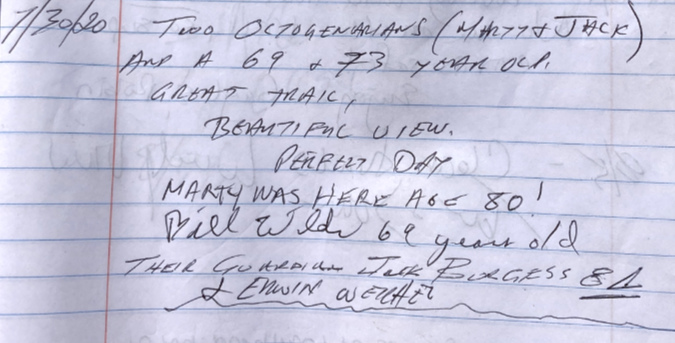 7/30/20 TWO OCTOGENARIANS (MARTY & JACK)
AND A 69 & 73 YEAR OLD.
GREAT TRAIL,
BEAUTIFUL VIEW.
PERFECT DAY
MARTY WAS HERE AGE 80!
Bill Wilde 69 years old
THEIR GUARDIAN JACK BURGESS 81
& ERWIN